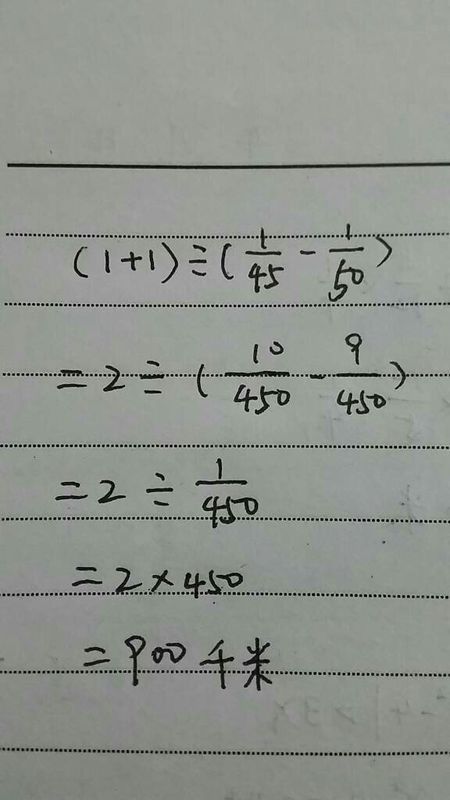 (1+1)÷(1/45-1/50)
=2÷(10/450-9/450)
=2÷1/450
=2×450
=900千米